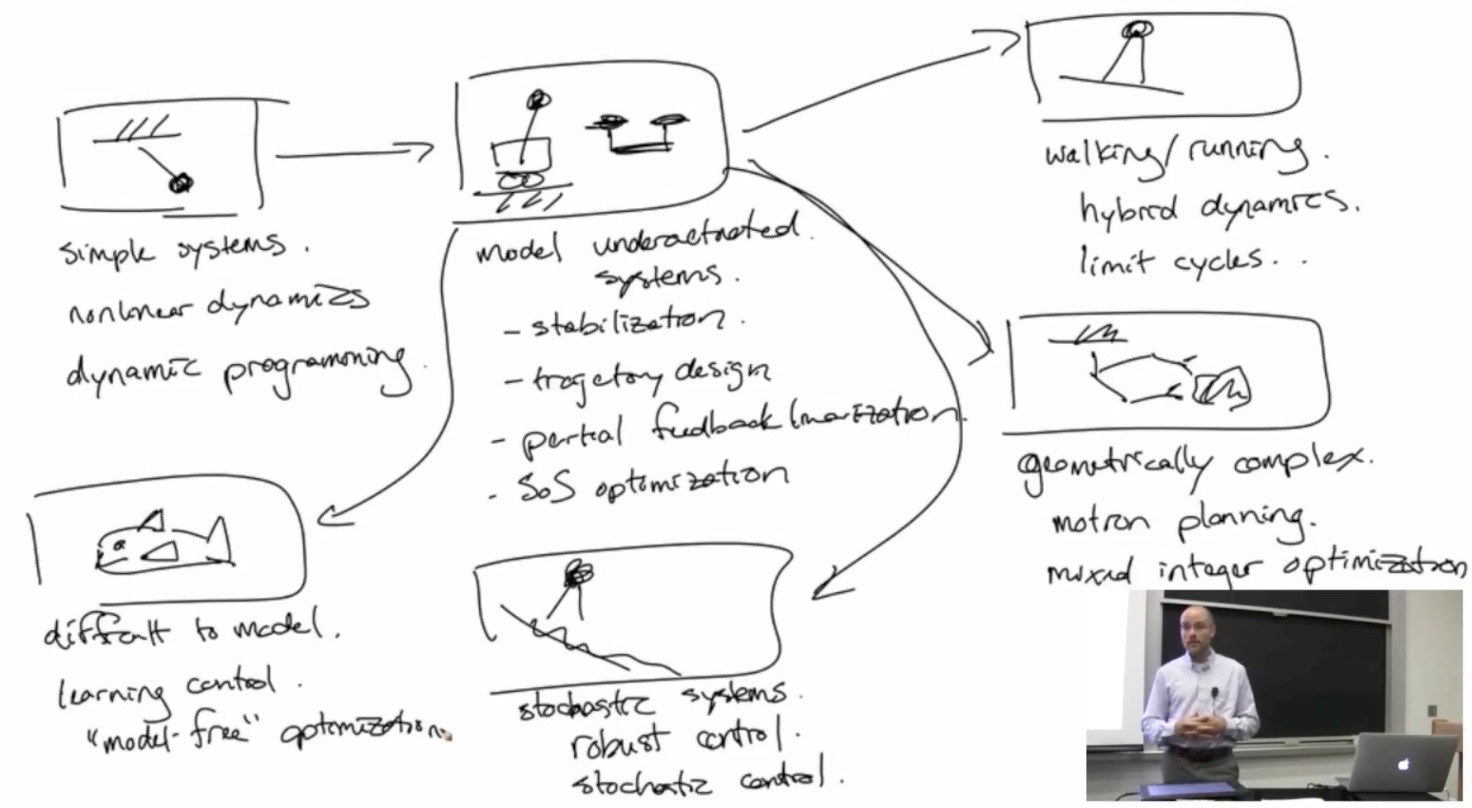 simple systems.
nonlinear dynamics
dynamic programming.
model underactuated.
systems.
- stabilization.
- tragetory design
- partial feedback linearization.
- SoS optimization
walking/running.
hybrid dynamics.
limit cycles..
geometrically complex.
motion planning.
mixed integer optimization
difficult to model.
learning control.
"model-free" optimization
stochastic systems.
robust control.
stochastic control.